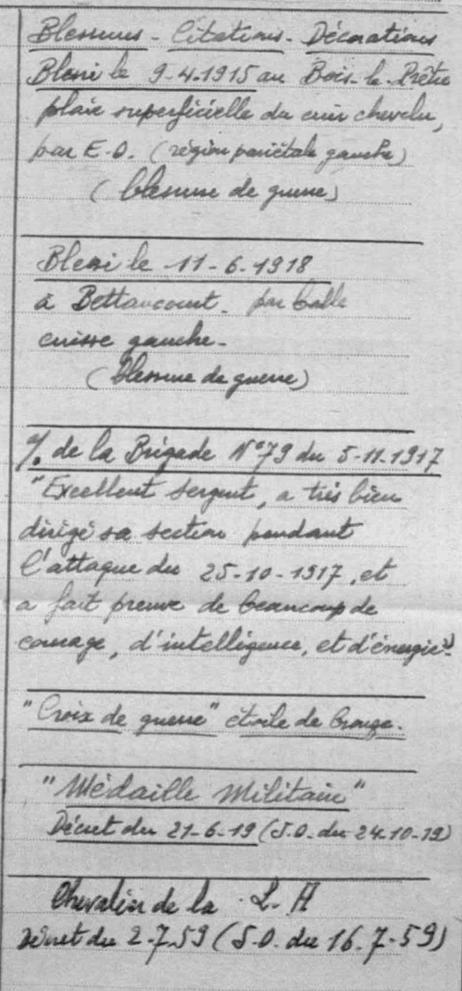 Blessures - Citations - Décorations
Blessé le 9-4-1915 au Bois-le-Prêtre
plaie superficielle du cuir chevelu,
par E-O. (région pariétale gauche)
(blessure de guerre)
Blessé le 11-6-1918
à Bettancourt - par balle
cuisse gauche -
(blessure de guerre)
de la Brigade N°79 du 5-11-1917
"Excellent sergent, a très bien
dirigé sa section pendant
l'attaque du 25-10-1917, et
a fait preuve de beaucoup de
courage, d'intelligence, et d'énergie"-
"Croix de guerre" étoile de bronze.
"Médaille Militaire"
Décret du 21-6-19 (J.O. du 24-10-19)
Chevalier de la L.H
Décret du 2-7-59 (J.O. du 16.7-59)